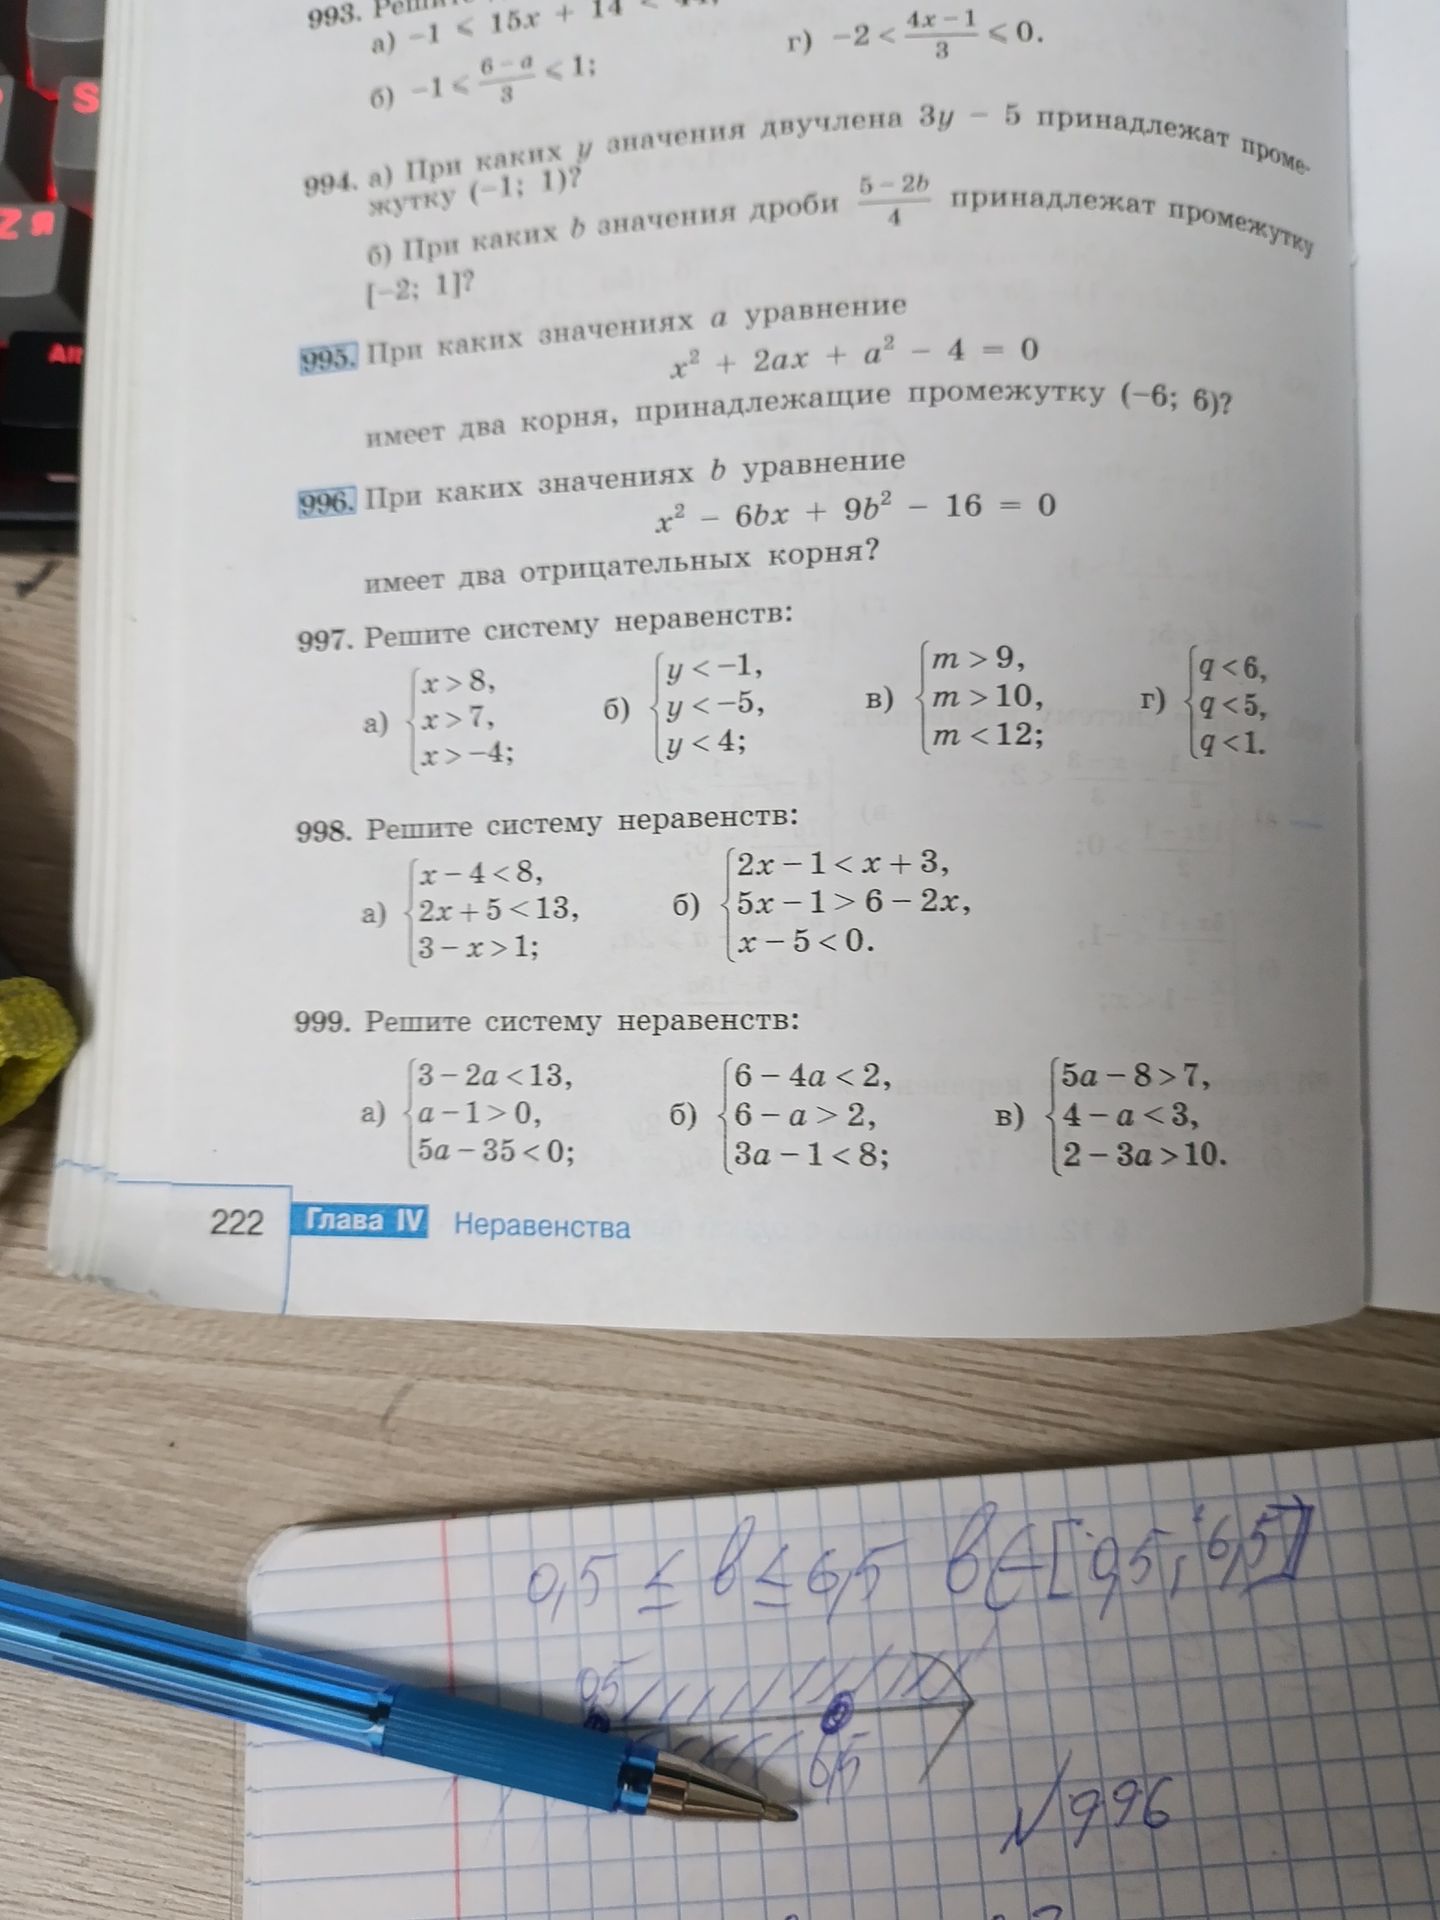 993.
а) −1 ⩽ 15x + 14 <
г) −2 < (4x − 1)/3 ⩽ 0.
б) −1 ⩽ (6 − a)/3 ⩽ 1;
994. а) При каких y значения двучлена 3y − 5 принадлежат проме-
жутку (−1; 1)?
б) При каких b значения дроби (5 − 2b)/4 принадлежат промежутку
[−2; 1]?
995. При каких значениях a уравнение
x² + 2ax + a² − 4 = 0
имеет два корня, принадлежащие промежутку (−6; 6)?
996. При каких значениях b уравнение
x² − 6bx + 9b² − 16 = 0
имеет два отрицательных корня?
997. Решите систему неравенств:
а) { x > 8, x > 7, x > −4; б) { y < −1, y < −5, y < 4; в) { m > 9, m > 10, m < 12; г) { q < 6, q < 5, q < 1.
998. Решите систему неравенств:
а) { x − 4 < 8, 2x + 5 < 13, 3 − x > 1; б) { 2x − 1 < x + 3, 5x − 1 > 6 − 2x, x − 5 < 0.
999. Решите систему неравенств:
а) { 3 − 2a < 13, a − 1 > 0, 5a − 35 < 0; б) { 6 − 4a < 2, 6 − a > 2, 3a − 1 < 8; в) { 5a − 8 > 7, 4 − a < 3, 2 − 3a > 10.
222 Глава IV Неравенства
0,5 ≤ b ≤ 6,5 b ∈ [0,5; 6,5]
0,5
6,5
№996
S
Z Я
Alt